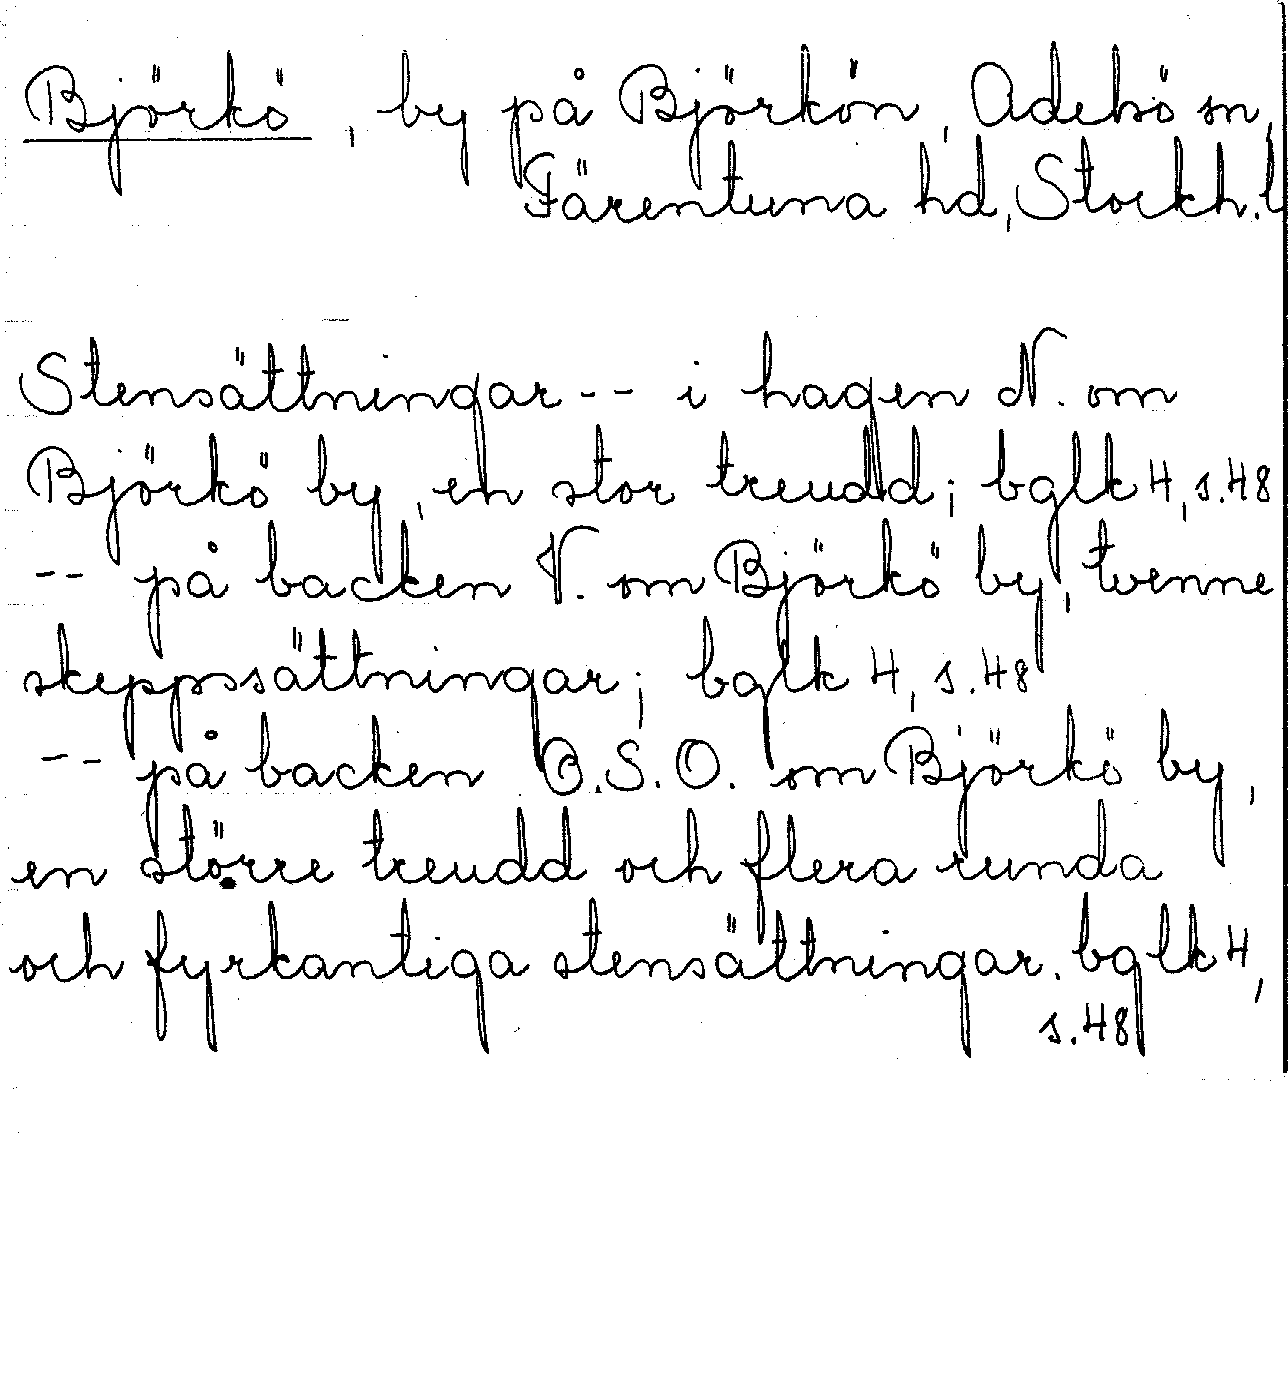 Björkö, by på Björkön, Adelsö sn,
Färentuna hd, Stockh.l
Stensättningar -- i hagen N. om
Björkö by, en stor treudd; bglk 4, s.48
-- på backen V. om Björkö by, tvenne
skeppssättningar; bglk 4, s.48
-- på backen O.S.O. om Björkö by,
en större treudd och flera runda
och fyrkantiga stensättningar. bglk 4,
s.48